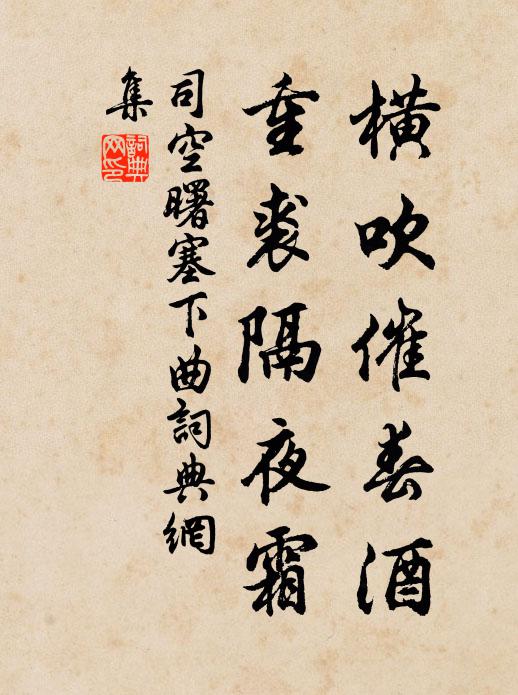 橫吹催春酒
重裘隔夜霜
司空曙塞下曲詞典網
集
詞典
网印